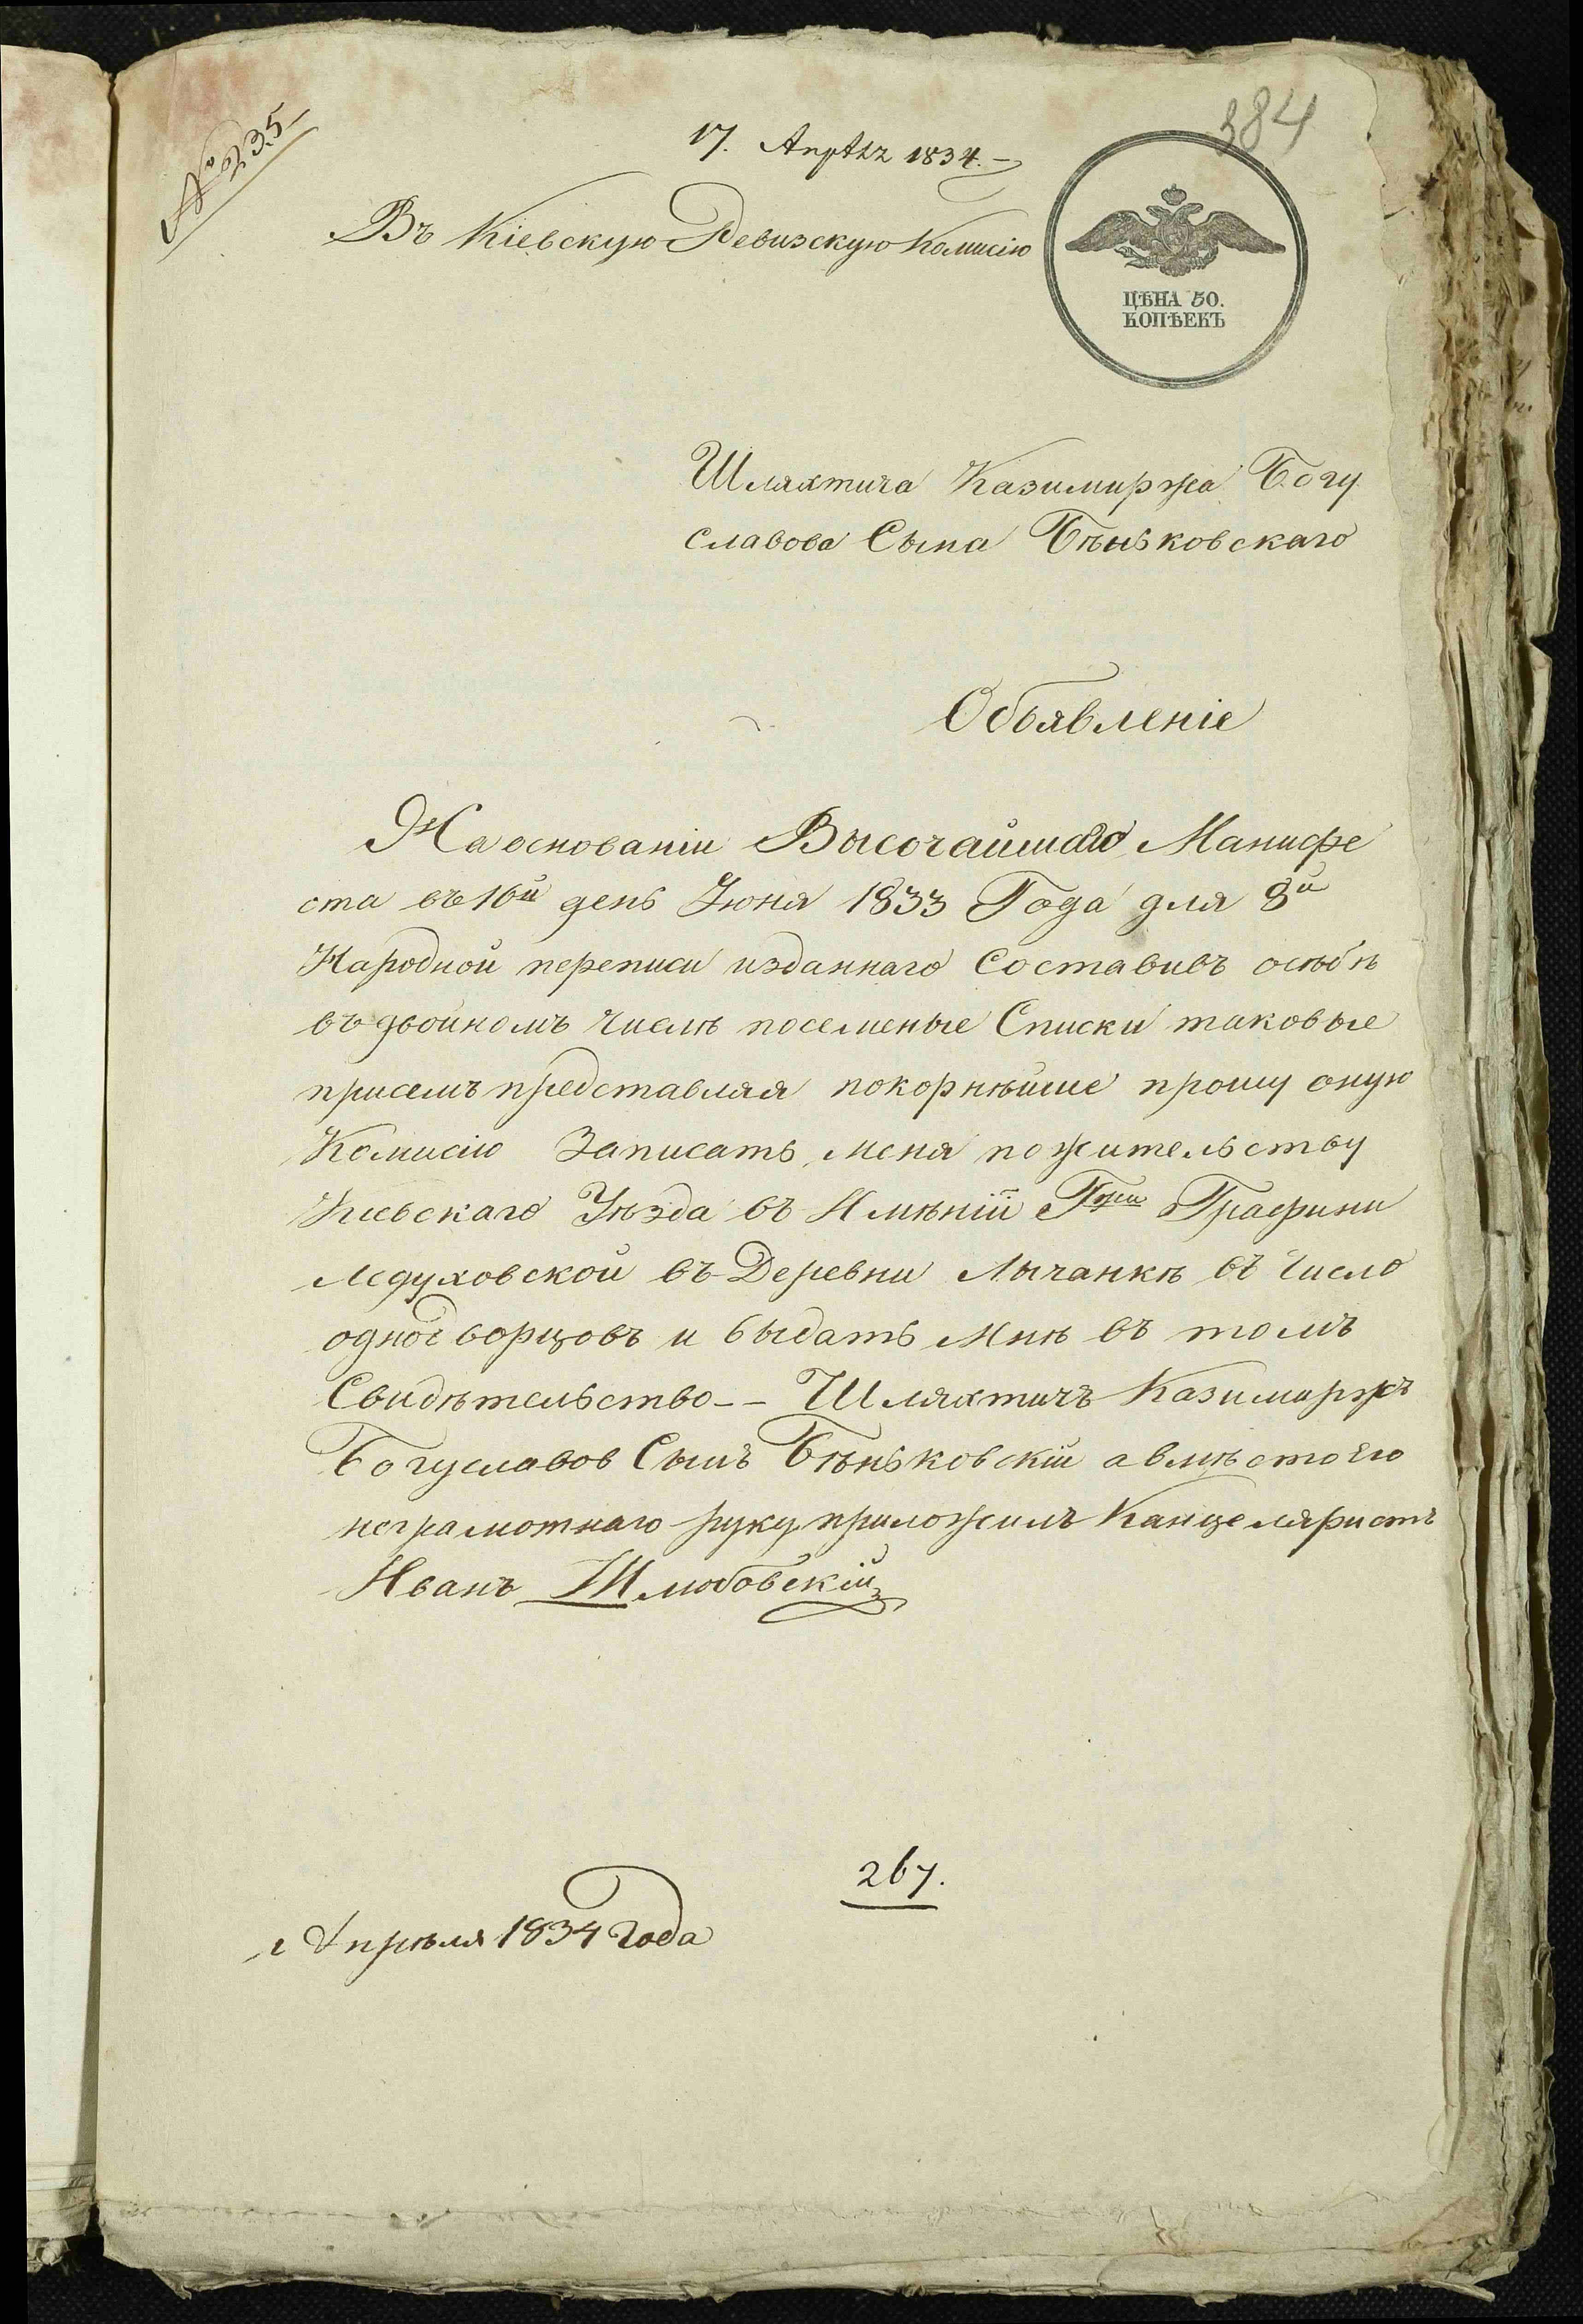 № 235
384
17. Апрѣлъ 1834.
Въ Кіевскую Ревизскую Комисію
ЦѢНА 50.
КОПѢЕКЪ
Шляхтича Казимиржа Богу
славова Сына Бѣньковскаго
Объявленіе
На основаніи Высочайшаго Манифе
ста въ 16й день Іюня 1833 Года для 8й
Народной переписи изданнаго Составивъ осебѣ
въ двойномъ числѣ посемейные Списки таковые
присемъ представляя покорнѣйше прошу оную
Комисію Записать меня по жительству
Кіевскаго Уѣзда въ Имѣніи Гжи Графини
Ледуховской въ Деревни Лычанкѣ въ Число
однодворцовъ и выдать мнѣ въ томъ
Свидѣтельство -- Шляхтичъ Казимиржъ
Богуславов Сынъ Бѣньковскій а вмѣсто его
неграмотнаго руку приложилъ Канцеляристъ
Иванъ Шлюбовскій
267.
Апрѣля 1834 Года